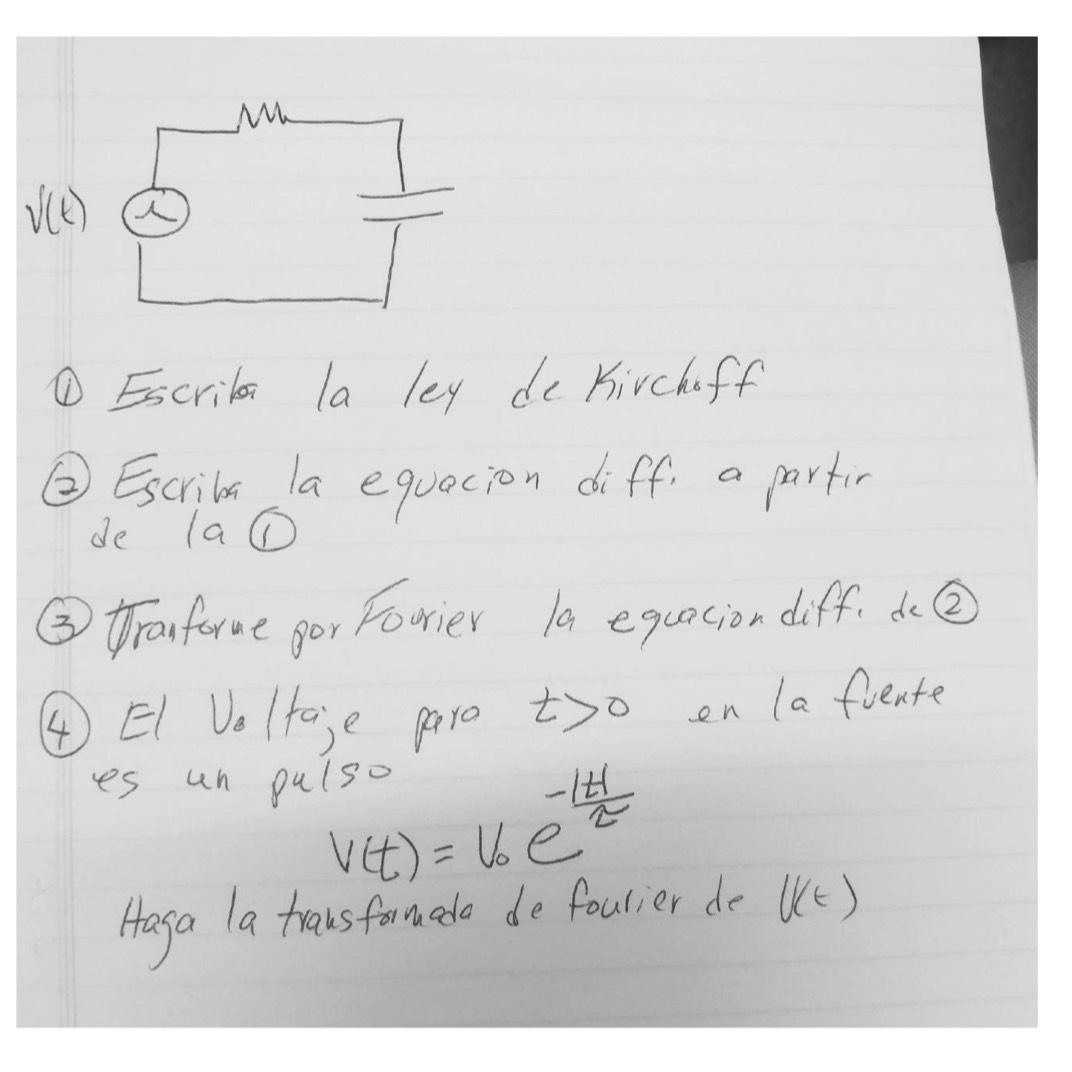 V(t)
① Escriba la ley de Kirchoff
② Escriba la equacion diff. a partir
de la ①
③ Tranforme por Fourier la equacion diff. de ②
④ El Voltaje para t>0 en la fuente
es un pulso
V(t) = V₀ e^(-|t|/τ)
Haga la transformada de fourier de V(t)